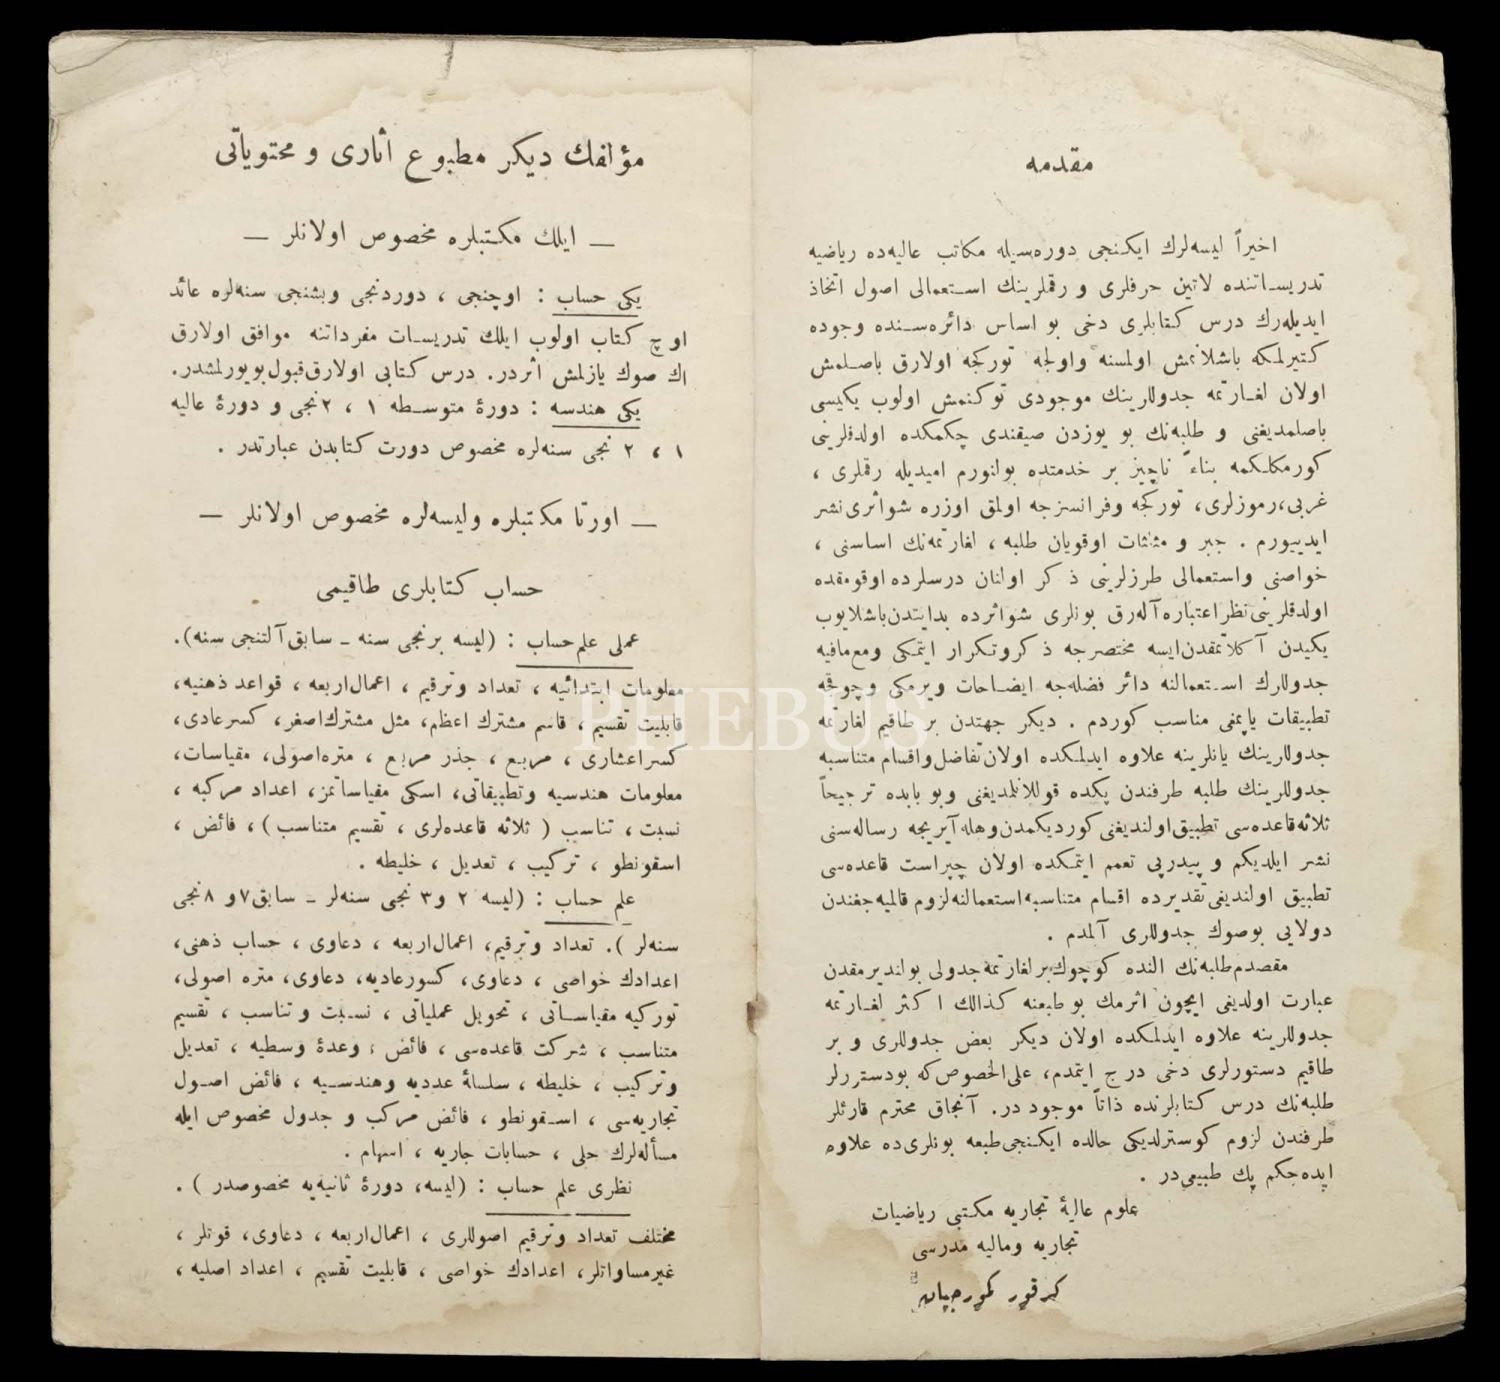 مقدمه
اخیراً لیسه‌لرك ایكنجی دوره‌سیله مكاتب عالیه‌ده ریاضیه
تدریساتنده لاتین حرفلری و رقملرینك استعمالی اصول اتخاذ
ایدیله‌رك درس كتابلری دخی بو اساس دائره‌سنده وجوده
كتیرلمكه باشلانمش اولمسنه واولجه توركجه اولارق باصلمش
اولان لغارتمه جدوللرینك موجودی توكنمش اولوب یكیسی
باصلمدیغنی و طلبه‌نك بو یوزدن صیقندی چكمكده اولدقلرینی
كورمكلكمه بناءً ناچیز بر خدمتده بولنورم امیدیله رقملری ،
غربی، رموزلری، توركجه وفرانسزجه اولمق اوزره شواثری نشر
ایدییورم . جبر و مثلثات اوقویان طلبه ، لغارتمه‌نك اساسنی ،
خواصنی واستعمالی طرزلرینی ذكر اولنان درسلرده اوقومقده
اولدقلرینی نظر اعتباره آله‌رق بونلری شواثرده بدایتدن باشلایوب
یكیدن آكلاتمقدن ایسه مختصرجه ذكروتكرار ایتمكی ومع‌مافیه
جدوللرك استعمالنه دائر فضله‌جه ایضاحات ویرمكی وچوقجه
تطبیقات یاپمغی مناسب كوردم . دیكر جهتدن بر طاقیم لغارتمه
جدوللرینك یانلرینه علاوه ایدلمكده اولان تفاضل واقسام متناسبه
جدوللرینك طلبه طرفندن پكده قوللانلمدیغنی وبو بابده ترجیحاً
ثلاثه قاعده‌سی تطبیق اولندیغنی كوردیكمدن وهله آیریجه رساله‌سنی
نشر ایلدیكم و پیدرپی تعمم ایتمكده اولان چپراست قاعده‌سی
تطبیق اولندیغی تقدیرده اقسام متناسبه استعمالنه لزوم قالمیه‌جغندن
دولایی بوصوك جدوللری آلمدم .
مقصدم طلبه‌نك النده كوچوك بر لغارتمه جدولی بولندیرمقدن
عبارت اولدیغی ایچون اثرمك بو طبعنه كذالك اكثر لغارتمه
جدوللرینه علاوه ایدلمكده اولان دیكر بعض جدوللری و بر
طاقیم دستورلری دخی درج ایتمدم، علی‌الخصوص كه بودستورلر
طلبه‌نك درس كتابلرنده ذاتاً موجوددر. آنجاق محترم قارئلر
طرفندن لزوم كوسترلدیكی حالده ایكنجی طبعه بونلری‌ده علاوه
ایده‌جكم پك طبیعی‌در .
علوم عالیهٔ تجاریه مكتبی ریاضیات
تجاریه ومالیه مدرسی
كرقور كموجیان
مؤلفك دیكر مطبوع آثاری و محتویاتی
— ایلك مكتبلره مخصوص اولانلر —
یكی حساب : اوچنجی ، دوردنجی وبشنجی سنه‌لره عائد
اوچ كتاب اولوب ایلك تدریسات مفرداتنه موافق اولارق
اك صوك یازلمش اثردر. درس كتابی اولارق قبول بویورلمشدر.
یكی هندسه : دورهٔ متوسطه ١ ، ٢نجی و دورهٔ عالیه
١ ، ٢ نجی سنه‌لره مخصوص دورت كتابدن عبارتدر .
— اورتا مكتبلره ولیسه‌لره مخصوص اولانلر —
حساب كتابلری طاقیمی
عملی علم حساب : (لیسه برنجی سنه - سابق آلتنجی سنه).
معلومات ابتدائیه ، تعداد وترقیم ، اعمال اربعه ، قواعد ذهنیه،
قابلیت تقسیم ، قاسم مشترك اعظم، مثل مشترك اصغر، كسرعادی،
كسراعشاری ، مربع ، جذر مربع ، متره‌اصولی، مقیاسات،
معلومات هندسیه وتطبیقاتی، اسكی مقیاساتمز، اعداد مركبه ،
نسبت ، تناسب ( ثلاثه قاعده‌لری ، تقسیم متناسب )، فائض ،
اسقونطو ، تركیب ، تعدیل ، خلیطه .
علم حساب : (لیسه ٢ و٣ نجی سنه‌لر - سابق ٧ و ٨ نجی
سنه‌لر ). تعداد وترقیم، اعمال اربعه ، دعاوی ، حساب ذهنی،
اعدادك خواصی ، دعاوی، كسورعادیه، دعاوی، متره اصولی،
توركیه مقیاساتی ، تحویل عملیاتی ، نسبت و تناسب ، تقسیم
متناسب ، شركت قاعده‌سی ، فائض ، وعدهٔ وسطیه ، تعدیل
وتركیب ، خلیطه ، سلسلهٔ عددیه وهندسیه ، فائض اصول
تجاریه‌سی ، اسقونطو ، فائض مركب و جدول مخصوص ایله
مسأله‌لرك حلی ، حسابات جاریه ، اسهام .
نظری علم حساب : (لیسه، دورهٔ ثانیه‌یه مخصوصدر ) .
مختلف تعداد وترقیم اصوللری ، اعمال اربعه ، دعاوی، قوتلر ،
غیرمساواتلر، اعدادك خواصی ، قابلیت تقسیم ، اعداد اصلیه ،
PHEBUS